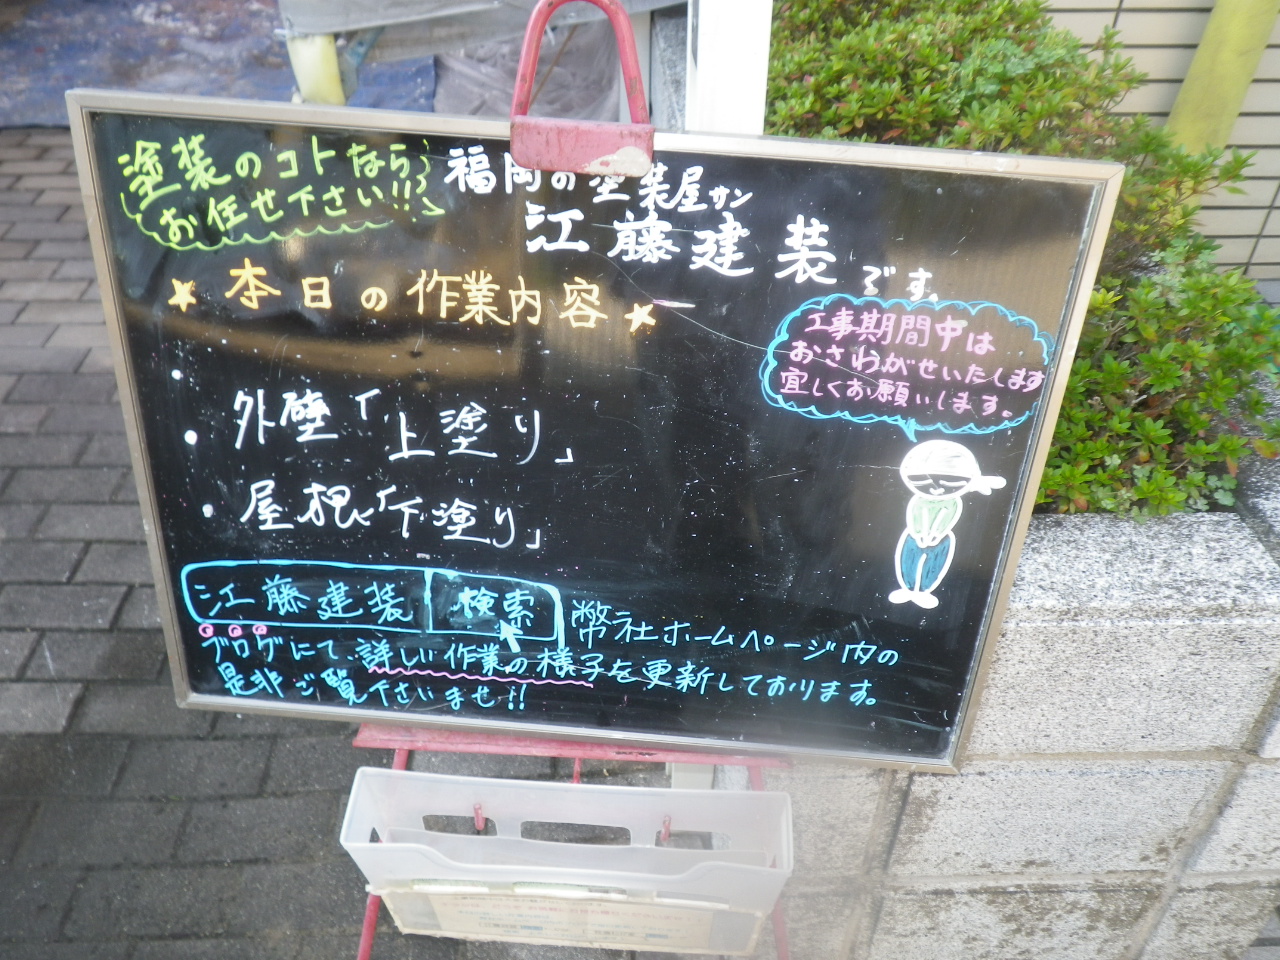 塗装のコトなら
お任せ下さい!!
福岡の塗装屋サン
江藤建装です。
★本日の作業内容★
工事期間中は
おさわがせいたします
宜しくお願いします。
・外壁「上塗り」
・屋根「下塗り」
江藤建装 検索
弊社ホームページ内の
ブログにて詳しい作業の様子を更新しております。
是非ご覧下さいませ!!